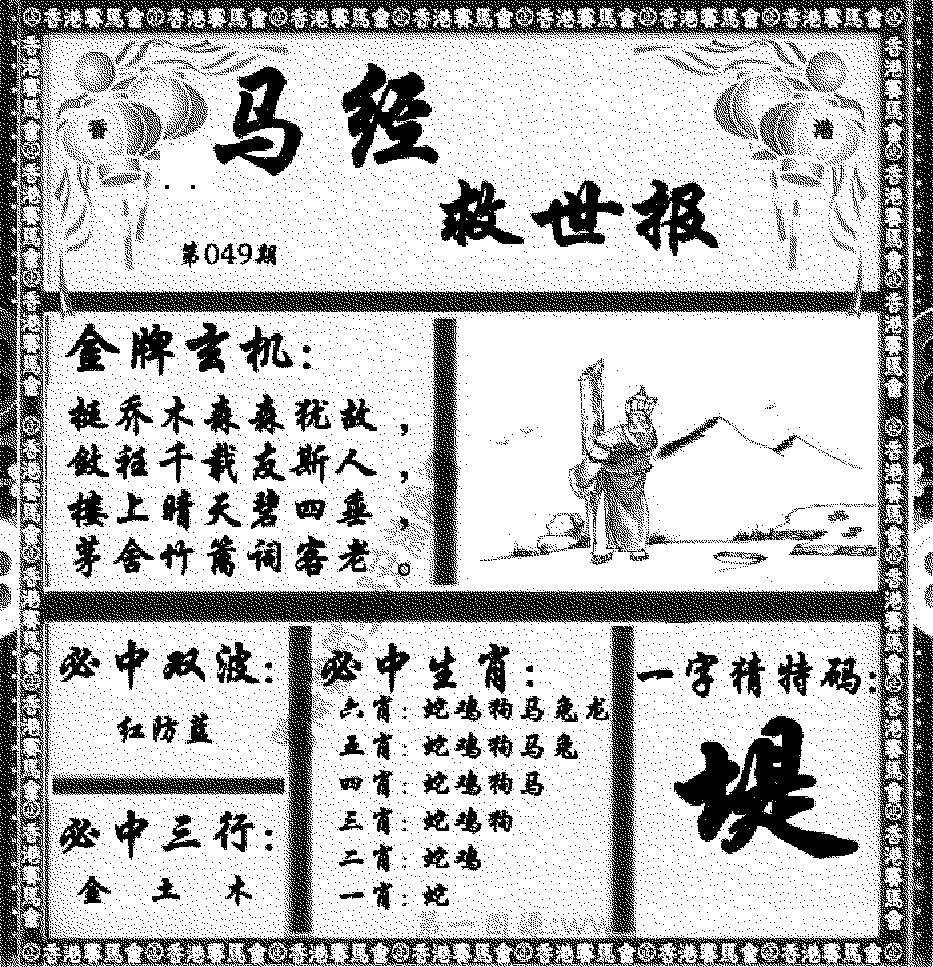 香港賽馬會香港賽馬會香港賽馬會香港賽馬會香港賽馬會香港賽馬會香港賽馬會
香
港
马经
救世报
第049期
金牌玄机：
挺乔木森森犹故，
敛稚千载友斯人，
楼上晴天碧四垂，
茅舍竹篱词客老。
必中双波：
红防蓝
必中三行：
金 土 木
必中生肖：
六肖：蛇鸡狗马兔龙
五肖：蛇鸡狗马兔
四肖：蛇鸡狗马
三肖：蛇鸡狗
二肖：蛇鸡
一肖：蛇
一字猜特码：
堤
香港賽馬會香港賽馬會香港賽馬會香港賽馬會香港賽馬會香港賽馬會香港賽馬會